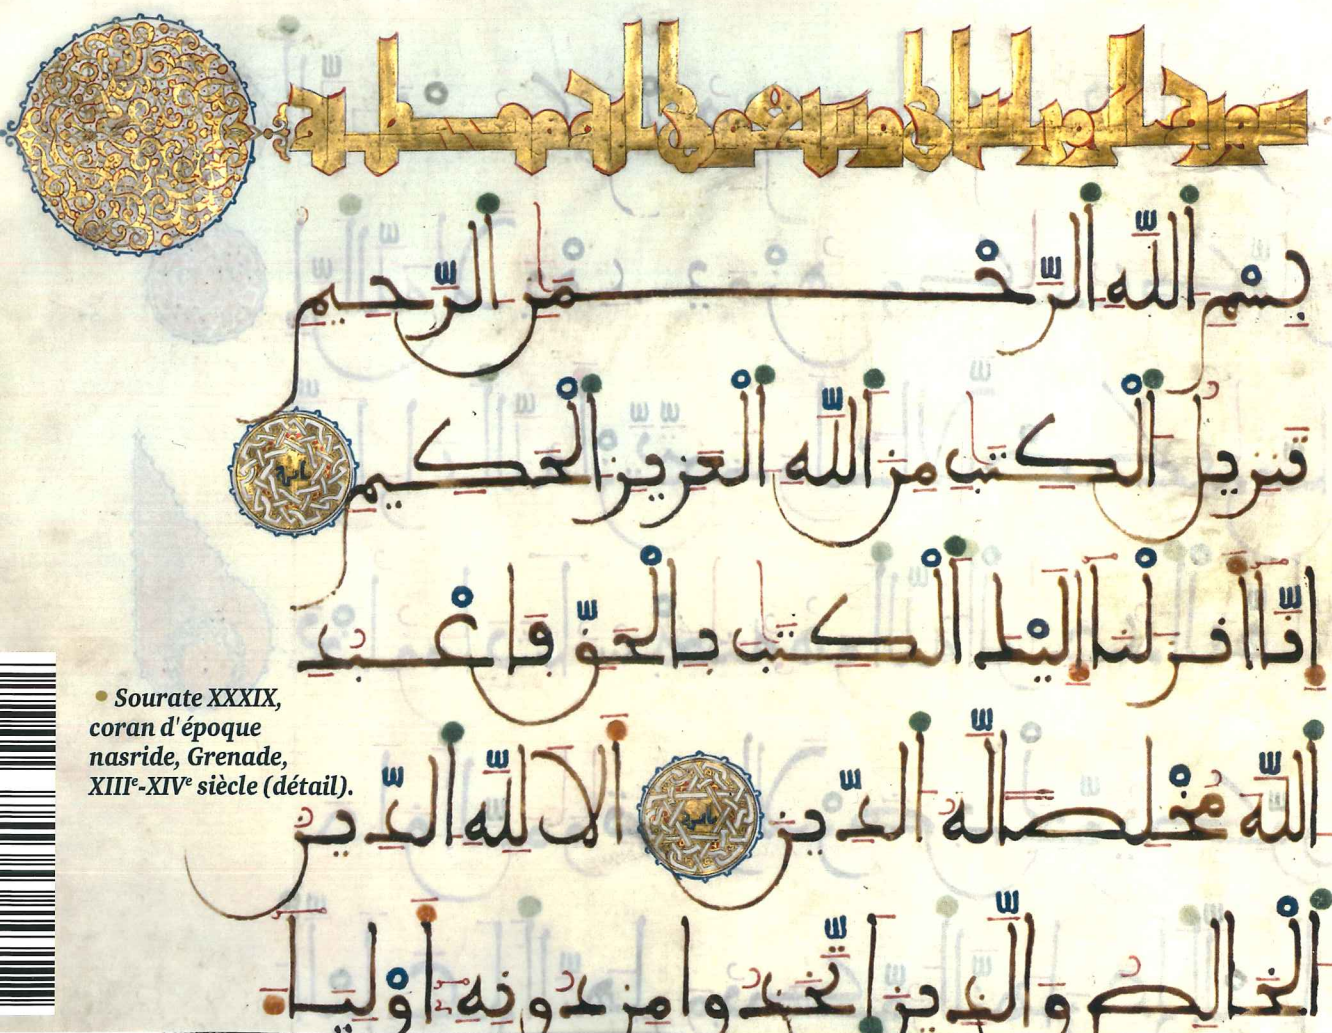 سورة الزمر
بسم الله الرحمن الرحيم
تنزيل الكتب من الله العزيز الحكيم
انا انزلنا اليك الكتب بالحق فاعبد
الله مخلصا له الدين الا لله الدين
الخالص والذين اتخذوا من دونه اوليا
• Sourate XXXIX,
coran d'époque
nasride, Grenade,
XIIIe-XIVe siècle (détail).